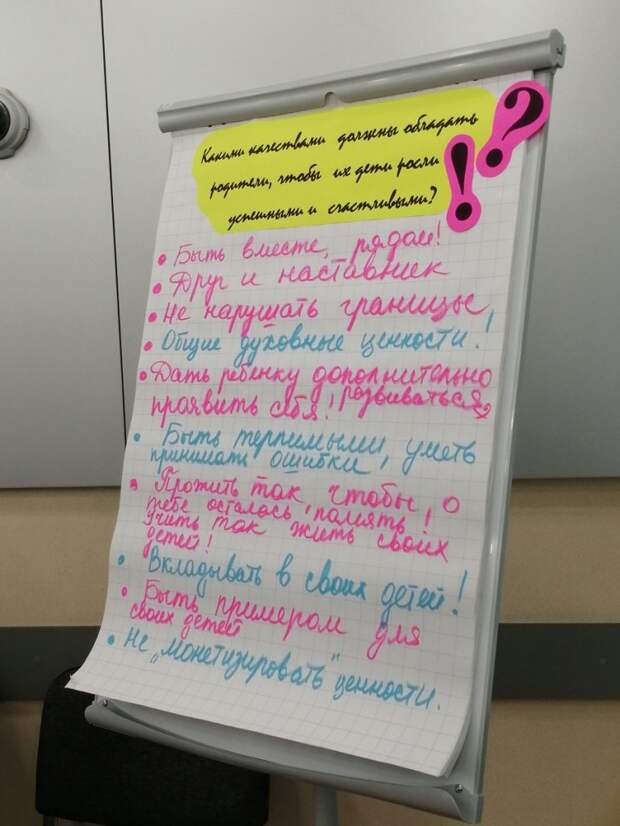 Какими качествами должны обладать
родители, чтобы их дети росли
успешными и счастливыми?
!?
• Быть вместе, рядом!
• Друг и наставник
• Не нарушать границы!
• Общие духовные ценности.
• Дать ребенку дополнительно
проявить себя! развиваться
• Быть терпимыми, уметь
принимать ошибки,
• Прожить так, чтобы о
тебе осталось память!
Учить так жить своих
детей!
• Вкладывать в своих детей!
• Быть примером для
своих детей
• Не „монетизировать" ценности.